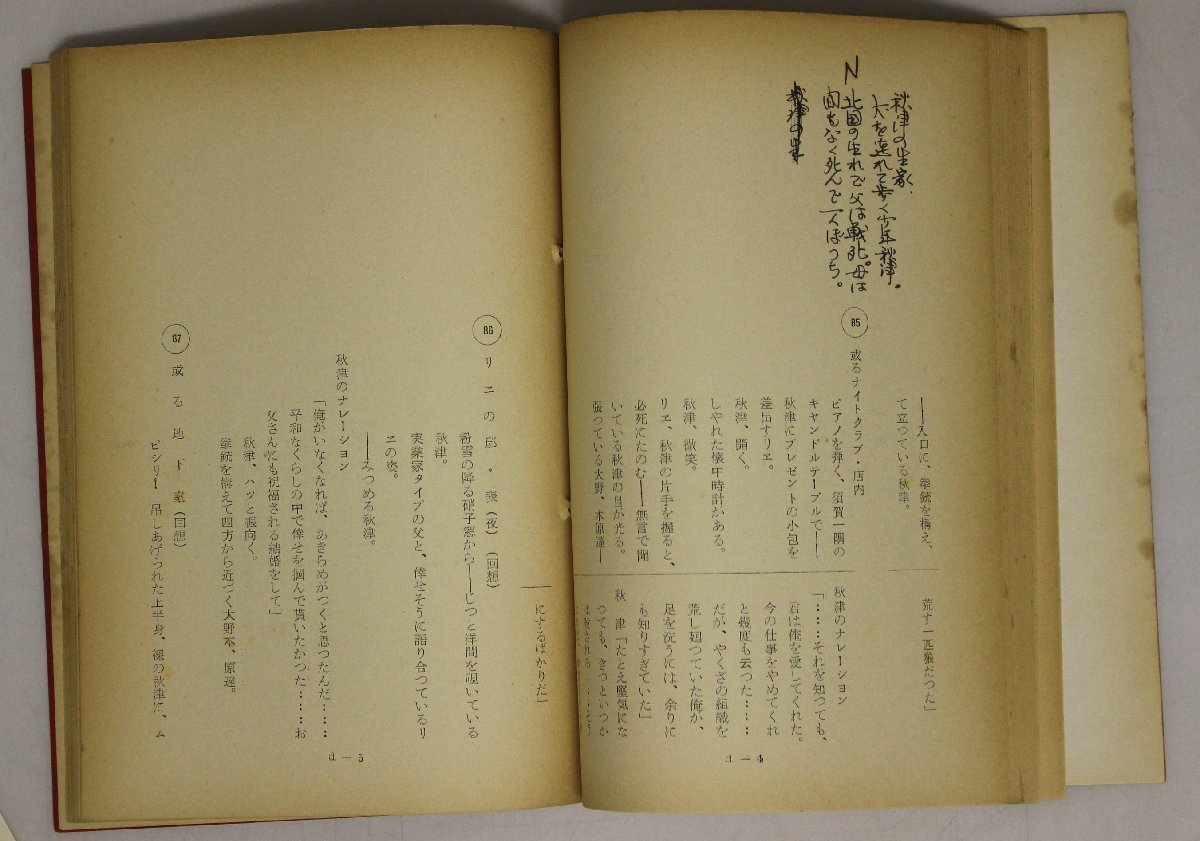 秋津の生家、
犬を連れて歩く少年秋津。
N
北国の生れで父は戦死。母は
間もなく死んで一人ぼっち。
――入口に、拳銃を構え、
て立つている秋津。
荒す一匹狼だつた」
85 或るナイトクラブ・店内
ピアノを弾く、須賀一隅の
キャンドルテーブルで――
秋津にプレゼントの小包を
差出すリエ。
秋津、開く。
しやれた懐中時計がある。
秋津、微笑。
リエ、秋津の片手を握ると、
必死にたのむ――無言で聞
いている秋津の目が光る。
張つている大野、木原達――
秋津のナレーション
「‥‥‥それを知つても、
君は俺を愛してくれた。
今の仕事をやめてくれ
と幾度も云つた‥‥‥
だが、やくざの組織を
荒し廻つていた俺が、
足を洗うには、余りに
も知りすぎていた」
秋 津「たとえ堅気にな
つても、きつといつか
d－4
にするばかりだ」
86 リエの邸・表(夜)(回想)
粉雪の降る硝子窓から――じつと洋間を覗いている
秋津。
実業家タイプの父と、倖せそうに語り合つているリ
エの姿。
――みつめる秋津。
秋津のナレーション
「俺がいなくなれば、あきらめがつくと思つたんだ‥‥‥
平和なくらしの中で倖せを掴んで貰いたかつた‥‥‥お
父さんにも祝福される結婚をして」
秋津、ハッと振向く。
拳銃を構えて四方から近づく大野、木原達。
87 或る地下室(回想)
ピシリ! 吊しあげられた上半身、裸の秋津に、ム
d－5